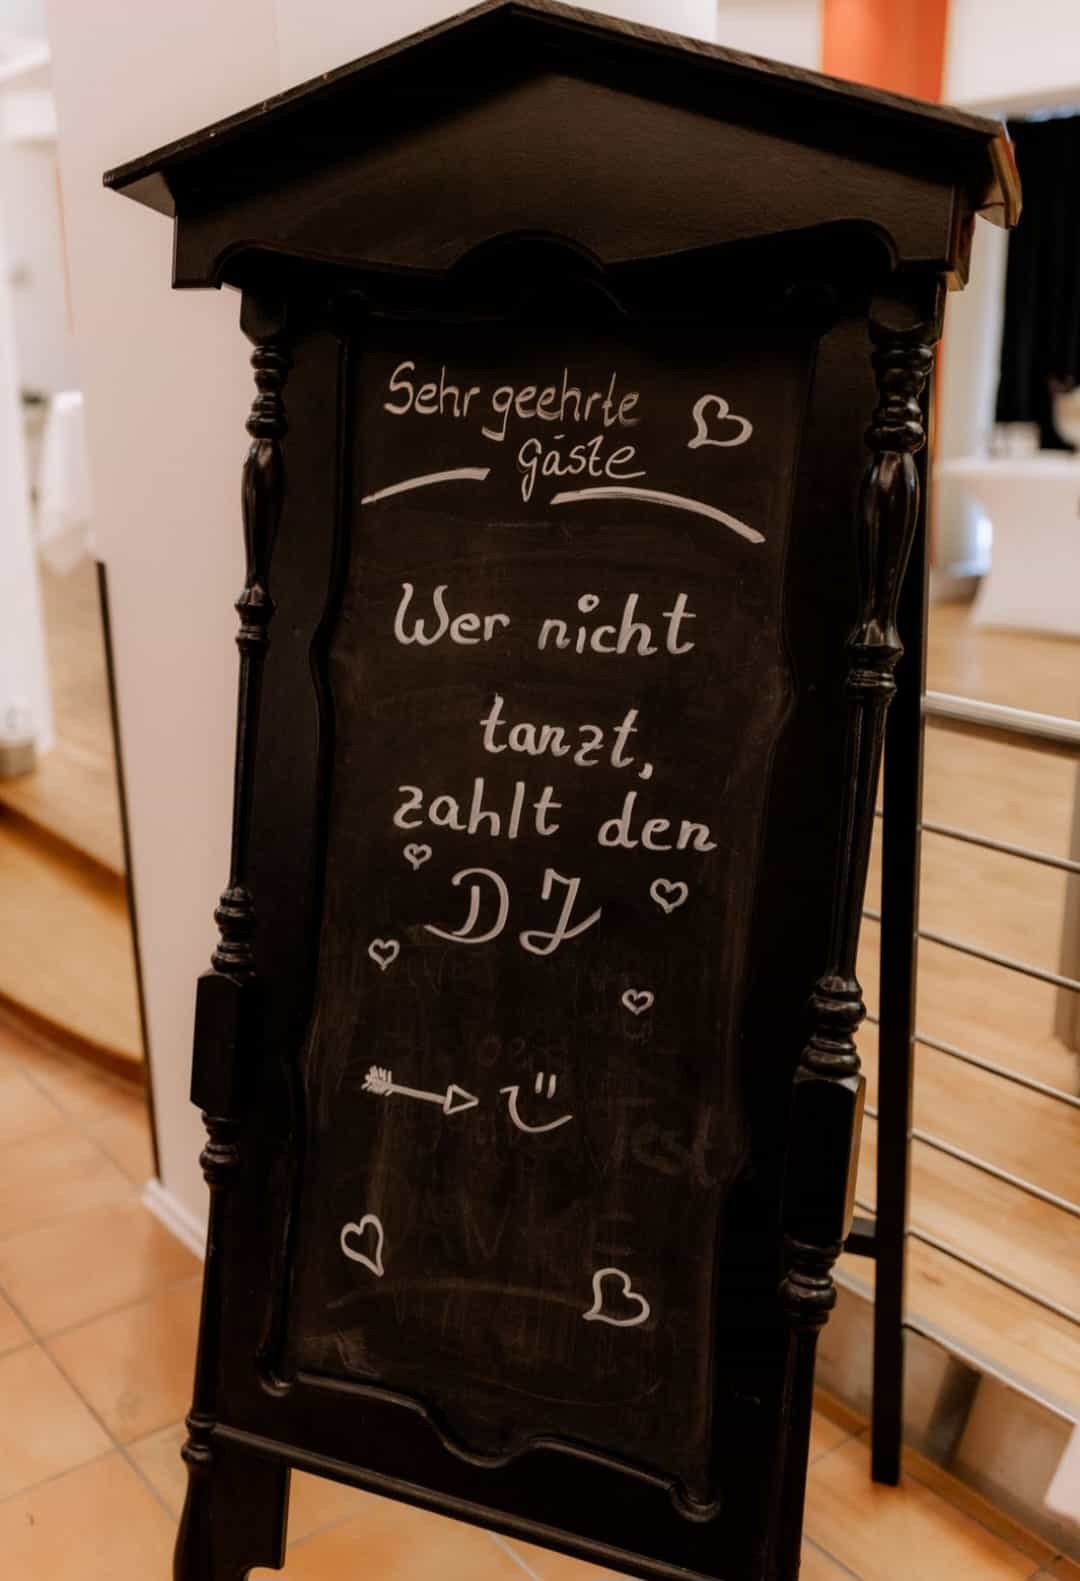 Sehr geehrte
gäste
Wer nicht
tanzt,
zahlt den
DJ